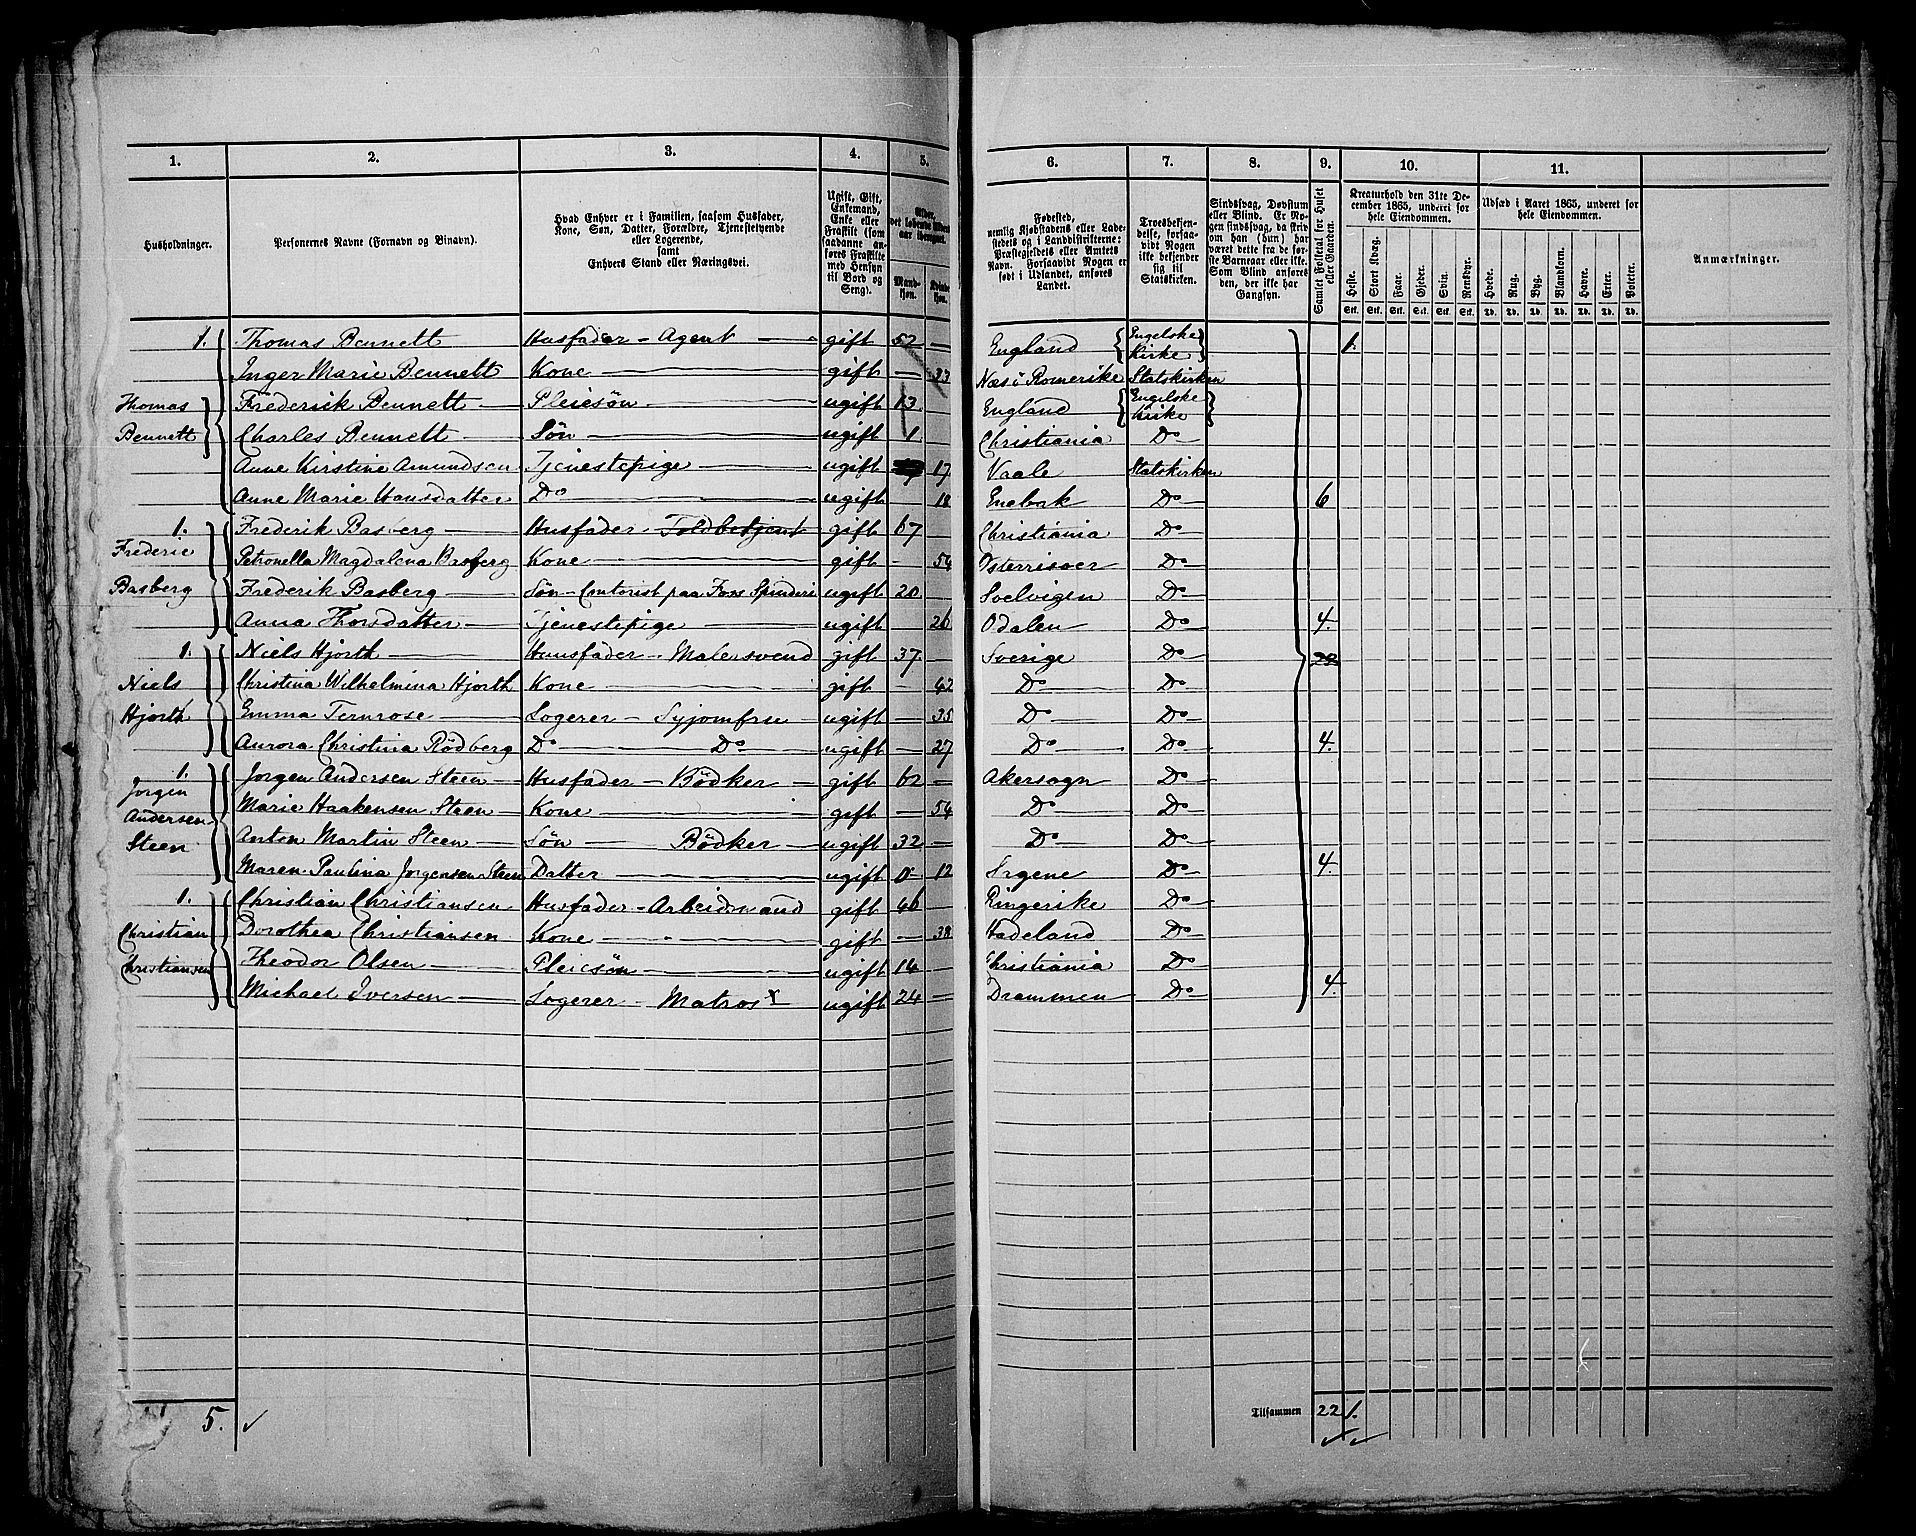 1. 2. 3. 4. 5. 6. 7. 8. 9. 10. 11.
Husholdninger.
Personernes Navne (Fornavn og Binavn).
Hvad Enhver er i Familien, saasom Husfader,
Kone, Søn, Datter, Forældre, Tjenestetyende
eller Logerende,
samt
Enhvers Stand eller Næringsvei.
Ugift, Gift,
Enkemand,
Enke eller
Fraskilt (som
saadanne an-
føres Fraskilte
med Hensyn
til Bord og
Seng).
Alder,
det løbende Alders-
aar iberegnet.
Mand-
kjøn.
Kvinde-
kjøn.
Fødested,
nemlig Kjøbstadens eller Lade-
stedets og i Landdistrikterne:
Præstegjeldets eller Amtets
Navn. Forsaavidt Nogen er
født i Udlandet, anføres
Landet.
Troesbekjen-
delse, forsaa-
vidt Nogen
ikke bekjender
sig til
Statskirken.
Sindssvag, Døvstum
eller Blind. Er No-
gen sindssvag, da skriv
om han (hun) har
været dette fra de før-
ste Barneaar eller ikke.
Som Blind anføres
den, der ikke har
Gangsyn.
Samlet Folketal for Huset
eller Gaarden.
Kreaturhold den 31te De-
cember 1865, underet for
hele Eiendommen.
Heste. Stort Kvæg. Faar. Gjeder. Svin. Rensdyr.
Stk. Stk. Stk. Stk. Stk. Stk.
Udsæd i Aaret 1865, underet for
hele Eiendommen.
Hvede. Rug. Byg. Blandkorn. Havre. Erter. Poteter.
Td. Td. Td. Td. Td. Td. Td.
Anmærkninger.
1. Thomas Bennett Husfader - Agent gift 52 England Engelske Kirke 1.
Inger Marie Bennett Kone gift 33 Næs i Romerike Statskirken
Thomas Frederik Bennett Pleiesøn ugift 13 England Engelske Kirke
Bennett Charles Bennett Søn ugift 1 Christiania Do
Anne Kirstine Amundsen Tjenestepige ugift 17 Vaale Statskirken
Anne Marie Hansdatter Do ugift 18 Enebak Do 6
1. Frederik Basberg Husfader - Toldbetjent gift 67 Christiania Do
Frederic Petronella Magdalena Basberg Kone gift 54 Østerrisoer Do
Basberg Frederik Basberg Søn - Contorist paa Foss Spinderi ugift 20 Svelvigen Do
Anna Thorsdatter Tjenestepige ugift 26 Odalen Do 4.
1. Niels Hjorth Huusfader - Malersvend gift 37 Sverige Do 22
Niels Christina Wilhelmina Hjorth Kone gift 42 Do Do
Hjorth Emma Ternrose Logerer - Syjomfru ugift 35 Do Do
Aurora Christina Rödberg Do Do ugift 27 Do Do 4.
1. Jorgen Andersen Steen Husfader - Bödker gift 62 Akersogn Do
Jorgen Marie Haakensen Steen Kone gift 54 Do Do
Andersen
Steen Anton Martin Steen Søn Bödker ugift 32 Do Do
Maren Paulina Jorgensen Steen Datter ugift 12 Do 4.
1. Christian Christiansen Husfader - Arbeidsmand gift 46 Ringerike Do
Christian Dorothea Christiansen Kone gift 38 Hadeland Do
Christiansen Theodor Olsen Pleiesøn ugift 14 Christiania Do
Michael Iversen Logerer - Matros x ugift 24 Drammen Do 4.
5. Tilsammen 22 1.